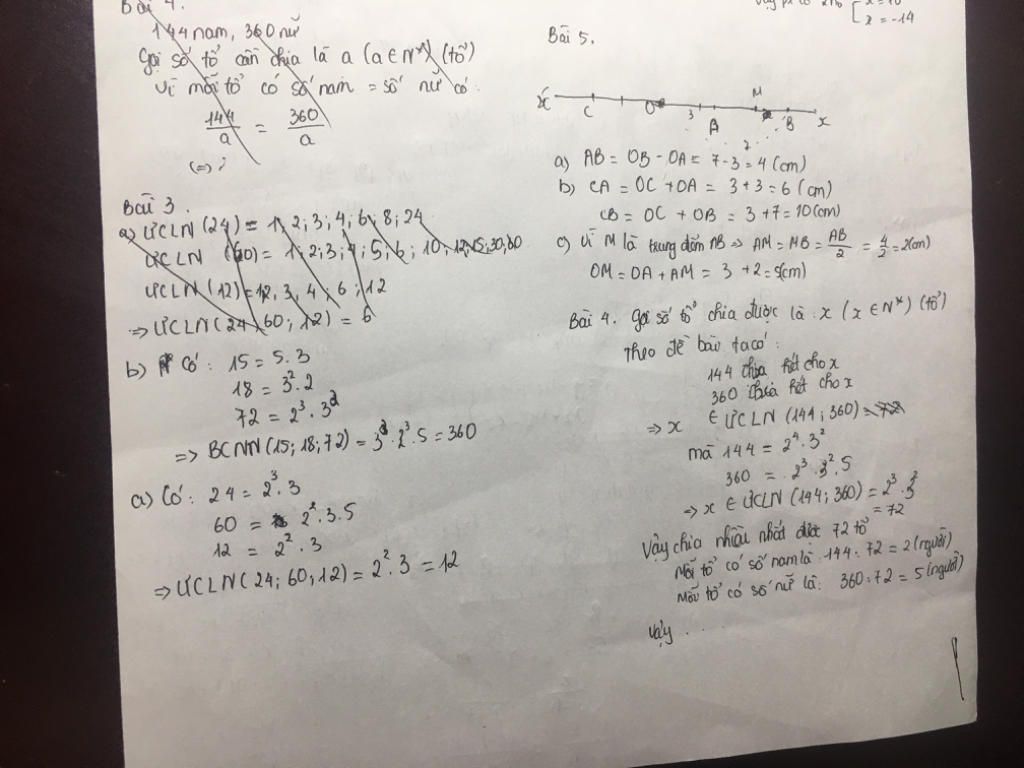 Bài 4.
144 nam, 360 nữ
Gọi số tổ cần chia là a (a ∈ N*) (tổ)
Vì mỗi tổ có số nam = số nữ có:
144/a = 360/a
(=)
Bài 3.
a) ƯCLN (24) = 1, 2; 3; 4; 6; 8; 24
ƯCLN (60) = 1; 2; 3; 4; 5; 6; 10; 12; 15; 30; 60
ƯCLN (12) = 1, 3, 4, 6; 12
=> ƯCLN (24; 60; 12) = 6
b) Có: 15 = 5.3
18 = 3².2
72 = 2³.3²
=> BCNN (15; 18; 72) = 3².2³.5 = 360
a) Có: 24 = 2³.3
60 = 2².3.5
12 = 2².3
=> ƯCLN (24; 60; 12) = 2².3 = 12
x = -14
Bài 5.
x' C O 3 A M B x
2
a) AB = OB - OA = 7 - 3 = 4 (cm)
b) CA = OC + OA = 3 + 3 = 6 (cm)
CB = OC + OB = 3 + 7 = 10 (cm)
c) Vì M là trung điểm AB => AM = MB = AB/2 = 4/2 = 2 (cm)
OM = OA + AM = 3 + 2 = 5 (cm)
Bài 4. Gọi số tổ chia được là: x (x ∈ N*) (tổ)
Theo đề bài ta có:
144 chia hết cho x
360 chia hết cho x
=> x ∈ ƯCLN (144; 360) = 72
mà 144 = 2⁴.3²
360 = 2³.3².5
=> x ∈ ƯCLN (144; 360) = 2³.3²
= 72
Vậy chia nhiều nhất được 72 tổ
Mỗi tổ có số nam là: 144 : 72 = 2 (người)
Mỗi tổ có số nữ là: 360 : 72 = 5 (người)
Vậy . . .